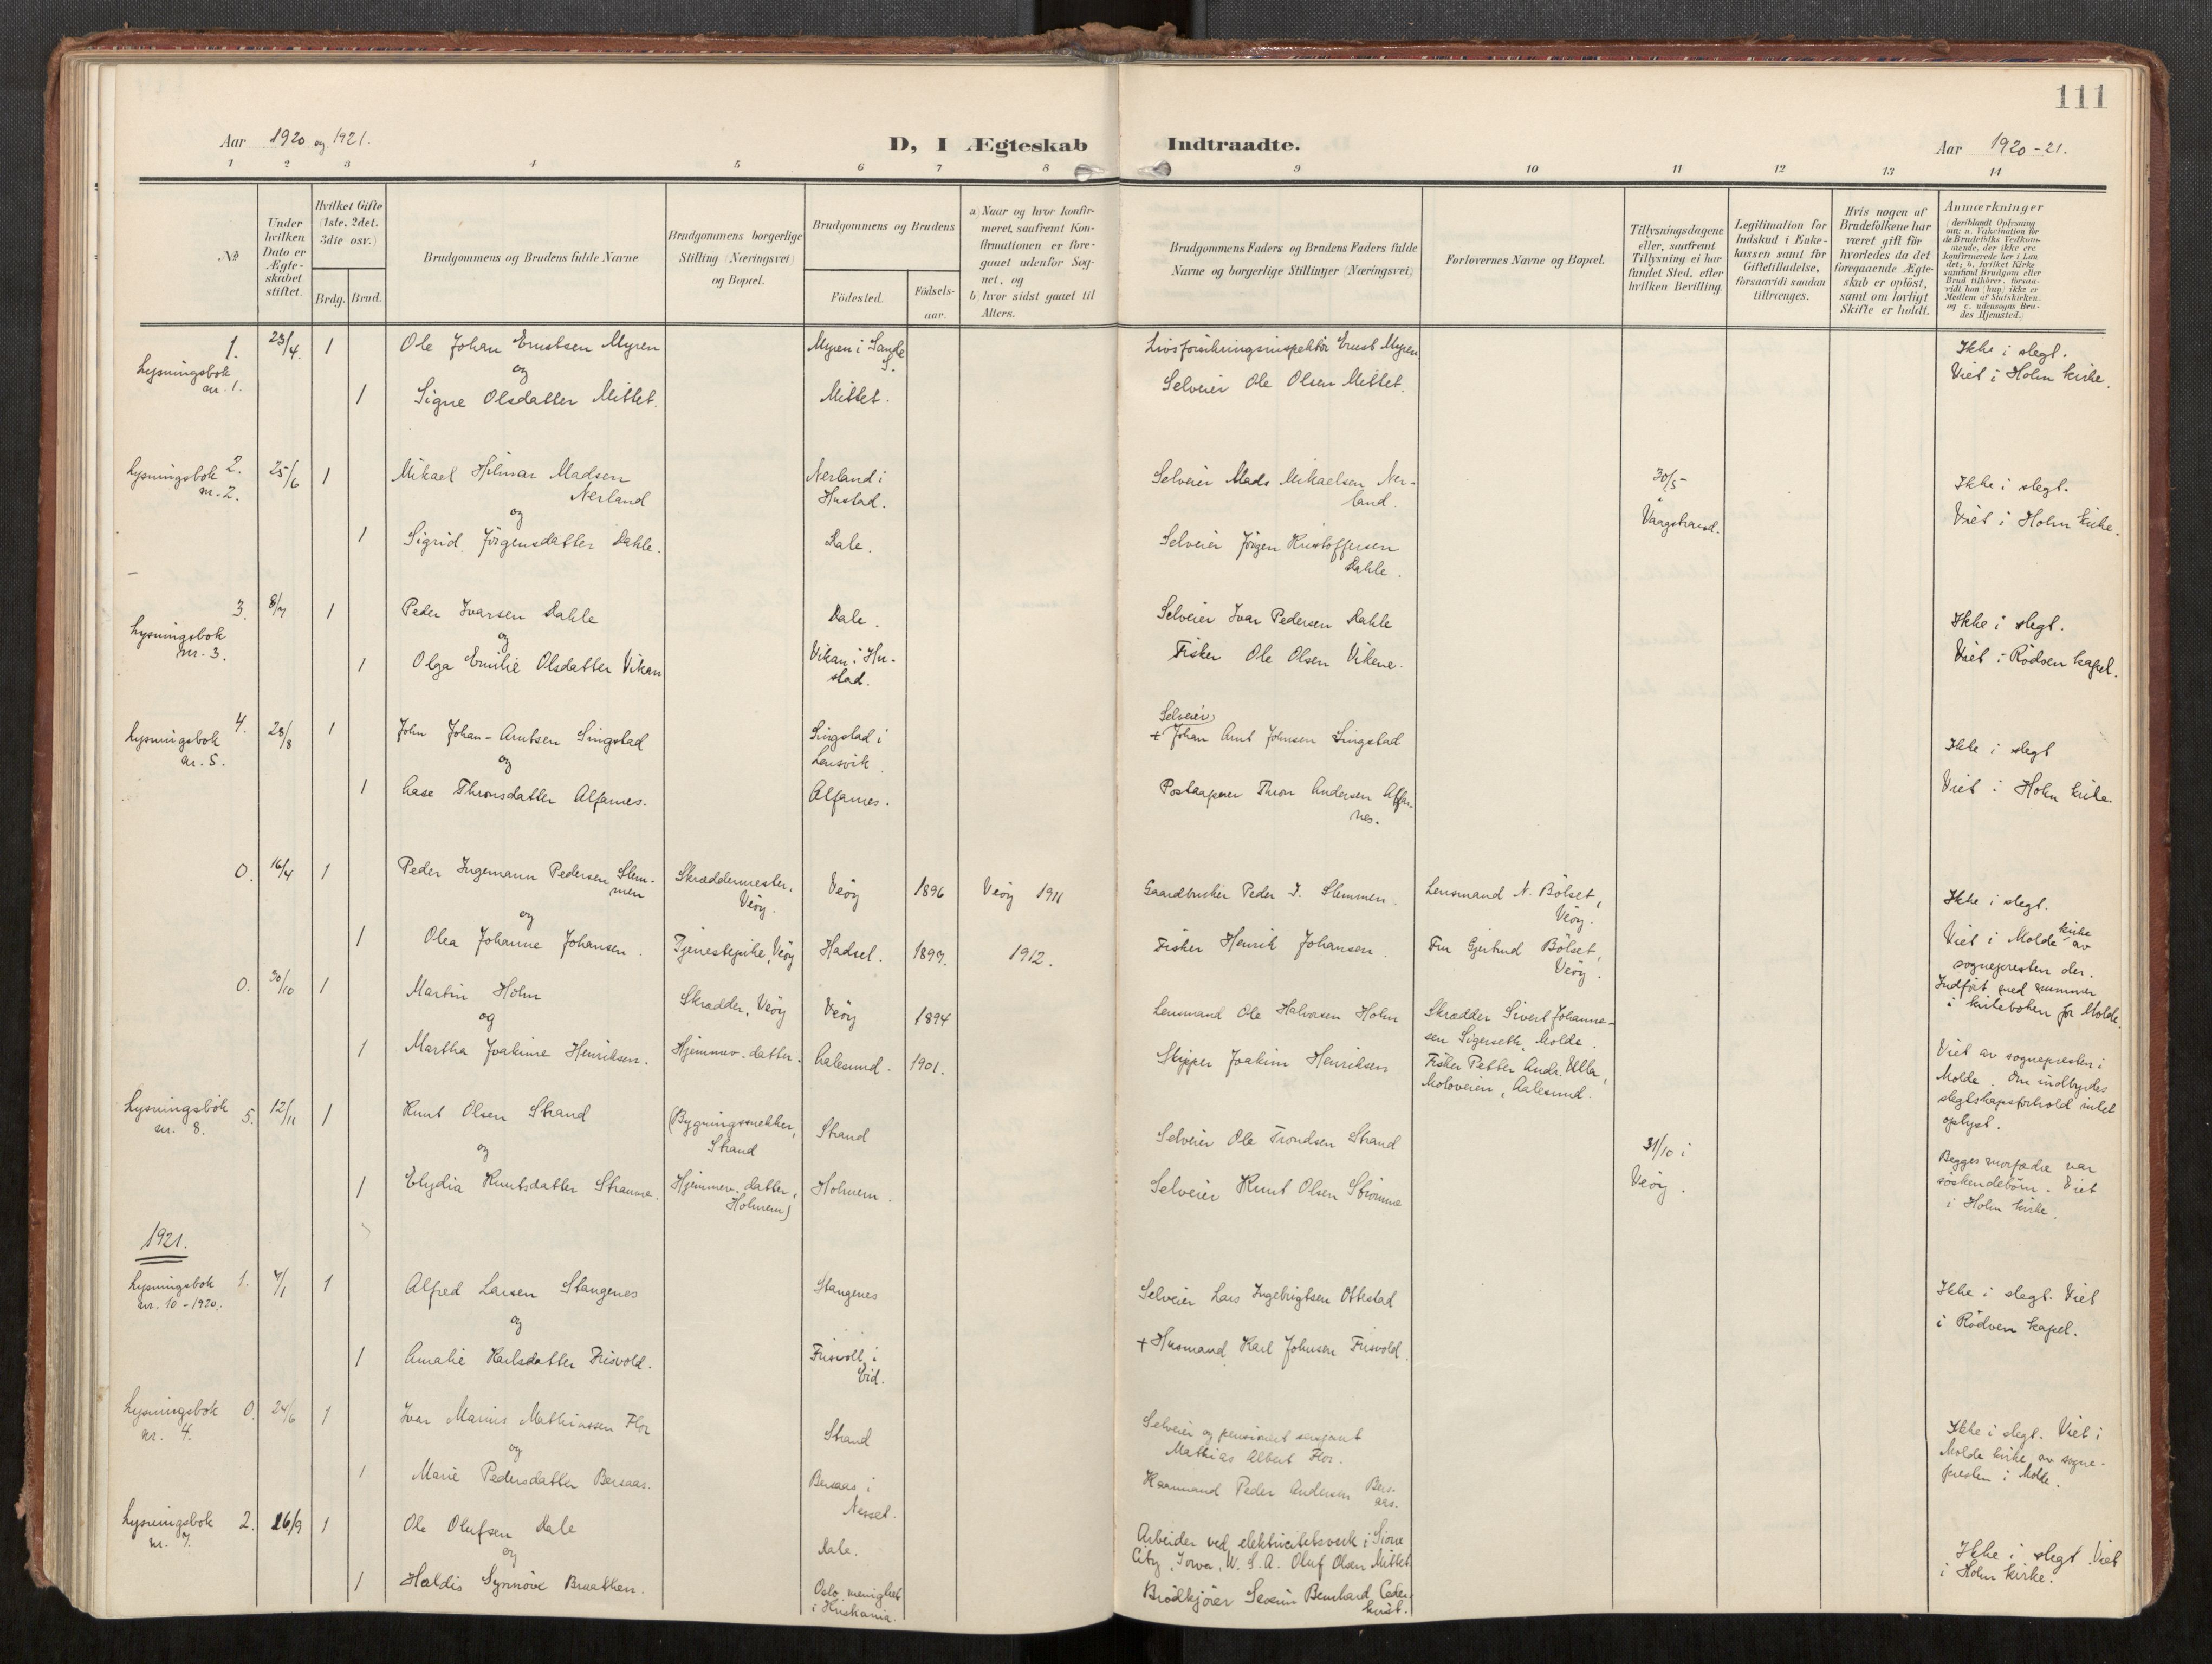 111
Aar 1920 og 1921.
D, I Ægteskab Indtraadte.
Aar 1920-21.
1 2 3 4 5 6 7 8 9 10 11 12 13 14
No
Under hvilken Dato er Ægteskabet stiftet.
Hvilket Gifte (1ste, 2det, 3die osv.)
Brdg. Brud.
Brudgommens og Brudens fulde Navne
Brudgommens borgerlige Stilling (Næringsvei) og Bopæl.
Brudgommens og Brudens
Fødested. Fødselsaar.
a) Naar og hvor konfirmeret, saafremt Konfirmationen er foregaaet udenfor Sognet, og
b) hvor sidst gaaet til Alters.
Brudgommens Faders og Brudens Faders fulde Navne og borgerlige Stillinger (Næringsvei)
Forlovernes Navne og Bopæl.
Tillysningsdagene eller, saafremt Tillysning ei har fundet Sted, efter hvilken Bevilling.
Legitimation for Indskud i Enkekassen samt for Giftetilladelse, forsaavidt saadan tiltrænges.
Hvis nogen af Brudefolkene har været gift før hvorledes da det foregaaende Ægteskab er opløst, samt om lovligt Skifte er holdt.
Anmærkninger
(deriblandt Oplysning om: a. Vakcination for de Brudefolks Vedkommende, der ikke ere konfirmerede her i Landet; b. hvilket Kirkesamfund Brudgom eller Brud tilhører, forsaavidt han (hun) ikke er Medlem af Statskirken, og c. udensogns Brudes Hjemsted.)
1. 23/4. 1 Ole Johan Ernstsen Myren Myren i Sande S. Livsforsikringsinspektör Ernst Myren Ikke i slegt.
Lysningsbok nr. 1. og Viet i Holm kirke.
1 Signe Olsdatter Mittet. Mittet. Selveier Ole Olsen Mittet.
2. 25/6 1 Mikael Hilmar Madsen Nerland Nerland i Hustad. Selveier Mads Mikaelsen Nerland. 30/5 Vaagstrand. Ikke i slegt.
Lysningsbok nr. 2. og Viet i Holm kirke.
1 Sigrid Jörgensdatter Dahle. Dale. Selveier Jörgen Kristoffersen Dahle.
3. 8/7 1 Peder Ivarsen Dahle Dale. Selveier Ivar Pedersen Dahle Ikke i slegt.
Lysningsbok nr. 3. og
1 Olga Emilie Olsdatter Vikan Vikan i Hustad. Fisker Ole Olsen Vikene. Viet i Rödven kapel.
4. 28/8 1 John Johan-Arntsen Singstad Singstad i Lensvik. Selveier + Johan Arnt Johnsen Singstad Ikke i slegt
Lysningsbok nr. 5. og Viet i Holm kirke.
1 Aase Thronsdatter Alfarnes. Alfarnes. Postaapner Thron Andersen Alfarnes.
0. 16/4 1 Peder Ingemann Pedersen Slemmen Skræddermester, Veöy. Veöy 1896 Veöy 1911 Gaardbruker Peder I. Slemmen. Lensmand N. Bölset, Veöy. Ikke i slegt.
og Viet i Molde kirke av sognepresten der.
1 Olea Johanne Johansen. Tjenestepike, Veöy Hadsel. 1897. 1912. Fisker Henrik Johansen. Fru Gjertrud Bölset, Veöy. Indfört med nummer i kirkeboken for Molde.
0. 30/10 1 Martin Holm Skrædder, Veöy Veöy 1894 Lensmand Ole Halvorsen Holm Skrædder Sivert Johannesen Sigerseth, Molde.
og
1 Martha Joakime Henriksen. Hjemmev. datter. Aalesund. 1901. Skipper Joakim Henriksen Fisker Petter Andr. Ulla, Moloveien, Aalesund. Viet av sognepresten i Molde. Om indbyrdes slegtskapsforhold intet oplyst.
Lysningsbok nr. 8. 5. 12/11 1 Knut Olsen Strand (Bygningssnekker, Strand Strand Selveier Ole Trondsen Strand 31/10 i Veöy.
og
1 Elydia Knutsdatter Strømme. Hjemmev. datter, Holmem) Holmem. Selveier Knut Olsen Strömme Begges morfædre var söskendebörn. Viet i Holm kirke.
1921.
Lysningsbok nr. 10-1920. 1. 7/1 1 Alfred Larsen Stangenes Stangenes Selveier Lars Ingebrigtsen Ottestad Ikke i slegt. Viet i Rödven kapel.
og
1 Amalie Karlsdatter Frisvold. Frisvoll i Eid. + Husmand Karl Johnsen Frisvold.
Lysningsbok nr. 4. 0. 24/6 1 Ivar Marius Mathiassen Flor Strand Selveier og pensionert sersjant Mathias Albert Flor. Ikke i slegt. Viet i Molde kirke av sognepresten i Molde.
og
1 Marie Pedersdatter Bersaas. Bersaas i Nesset. Kaarmand Peder Andersen Bersaas.
Lysningsbok nr. 7. 2. 16/9 1 Ole Olufsen Dale Dale. Arbeider ved elektricitetsverk i Sioux City, Iowa, U. S. A. Oluf Olsen Mittet Ikke i slegt. Viet i Holm kirke.
og
1 Haldis Synnöve Braathen. Oslo menighet i Kristiania. Brödkjörer Severin Bernhard Cederkvist.